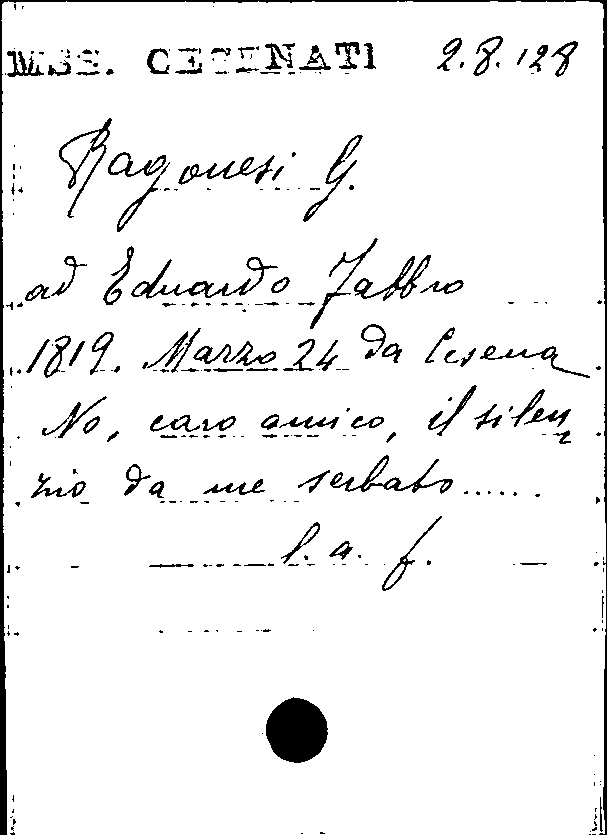 MSS. CESENATI 2.8.128
Ragonesi G.
ad Eduardo Fabbro
1819. Marzo 24 da Cesena
No, caro amico, il silen
zio da me serbato......
l. a. f.